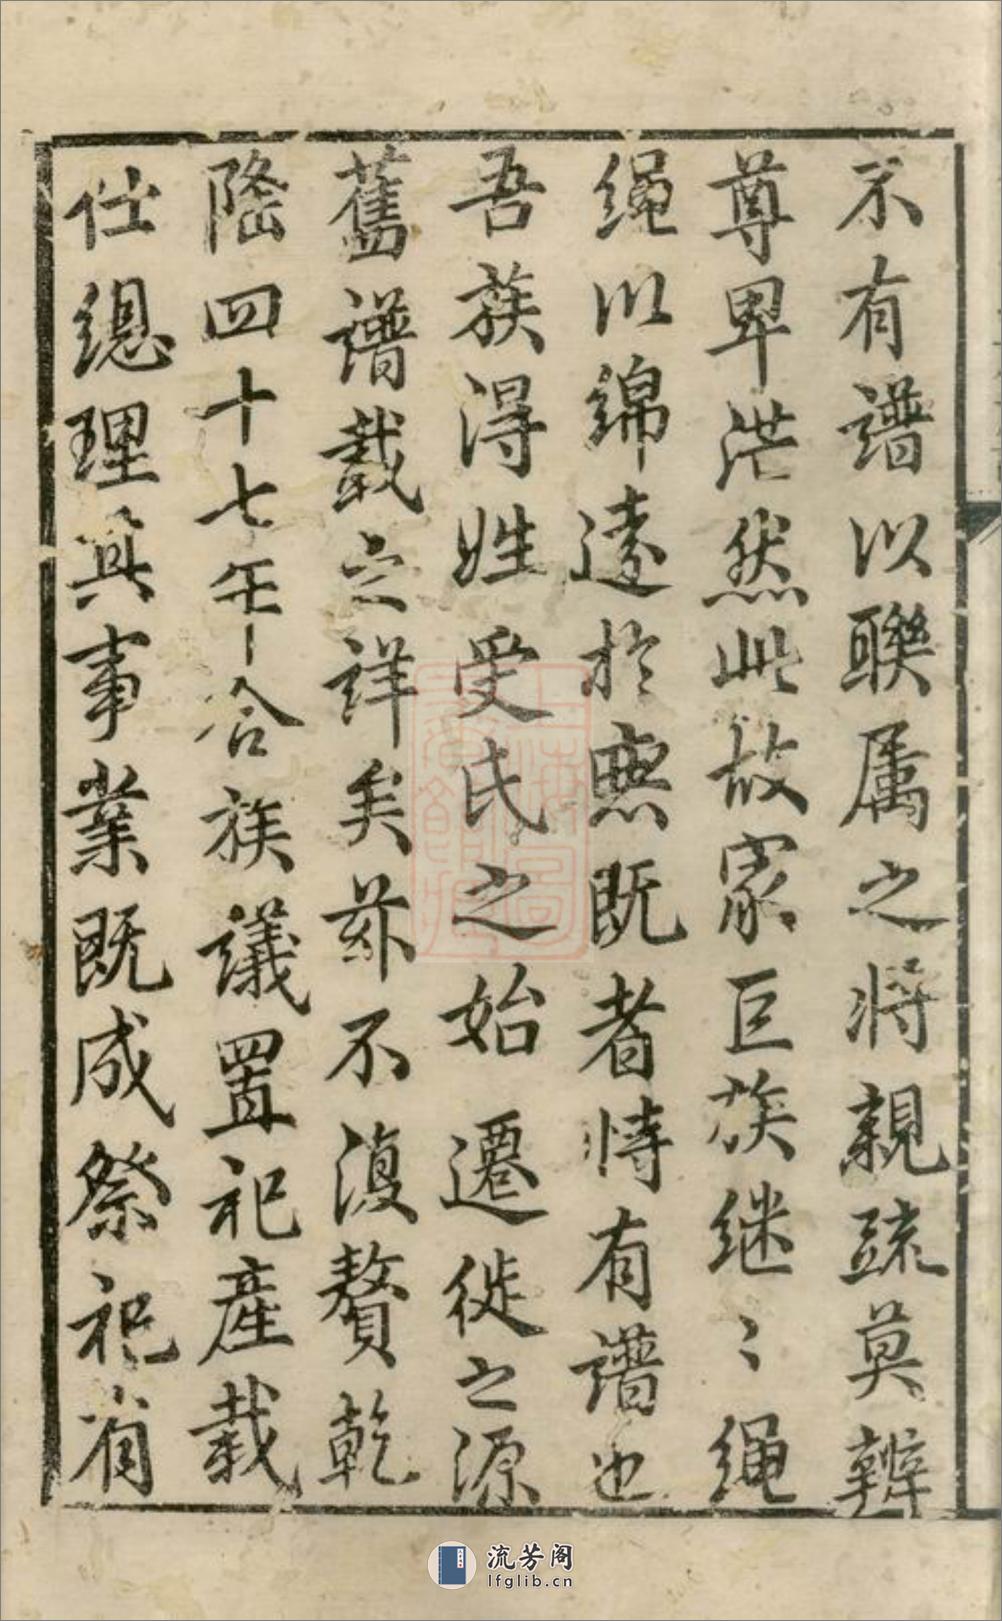 不有譜以聯属之将親疏莫辨
尊卑茫然此故家巨族継〻繩
繩以綿遠於無既者恃有譜也
吾族得姓受氏之始遷徙之源
舊譜載之詳矣茲不復贅乾
隆四十七年合族議置祀產載
仕總理其事業既成祭祀有
流芳阁
lfglib.cn